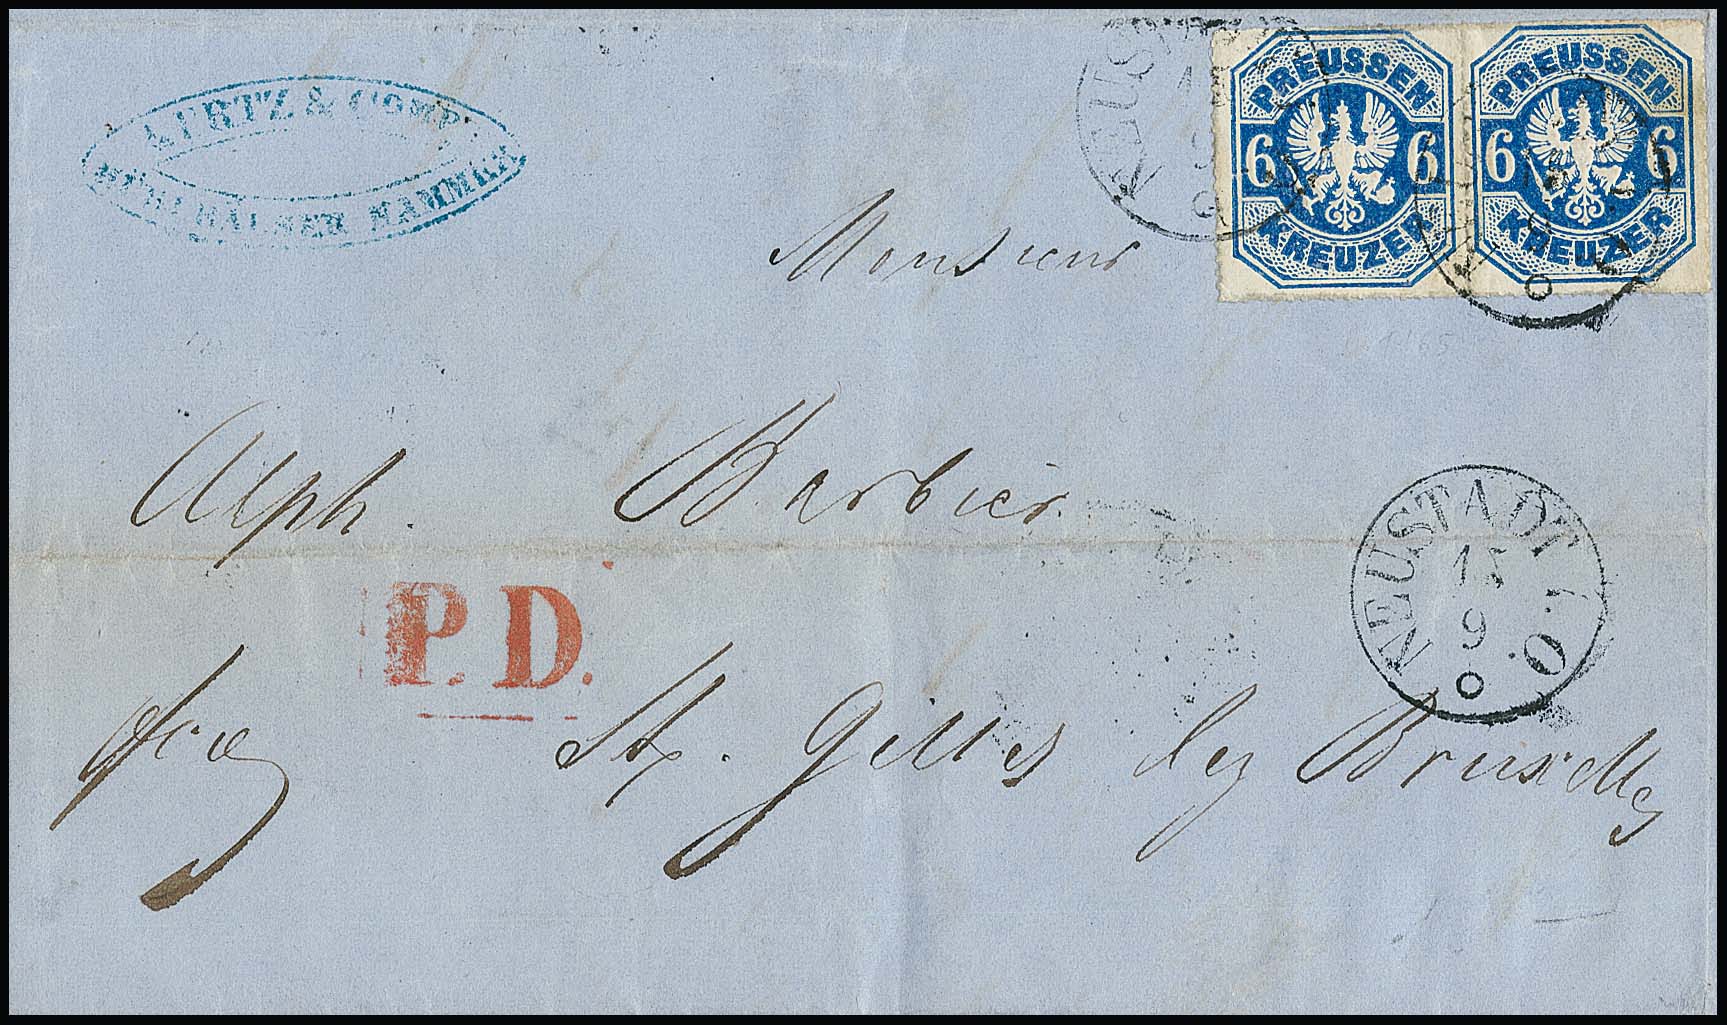 & COMP
HAMMER
PREUSSEN
6 6
KREUZER
PREUSSEN
6 6
KREUZER
Monsieur
Alph. Barbier
P.D.
NEUSTADT
15
9
O.
fco St. Gilles lez Bruxelles